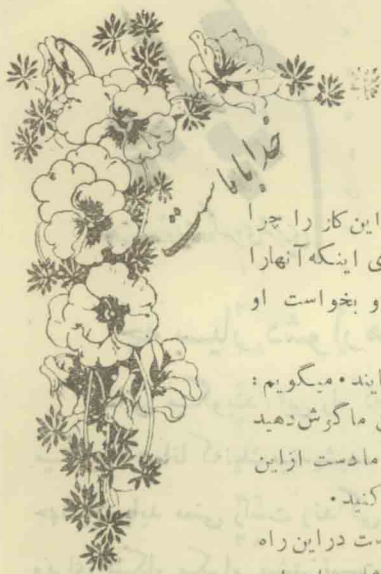 خدا با ماست
این کار را چرا
ی اینکه آنهارا
و بخواست او
ایند . میگویم :
ما گوش دهید
مادست ازاین
کنید .
ست در این راه